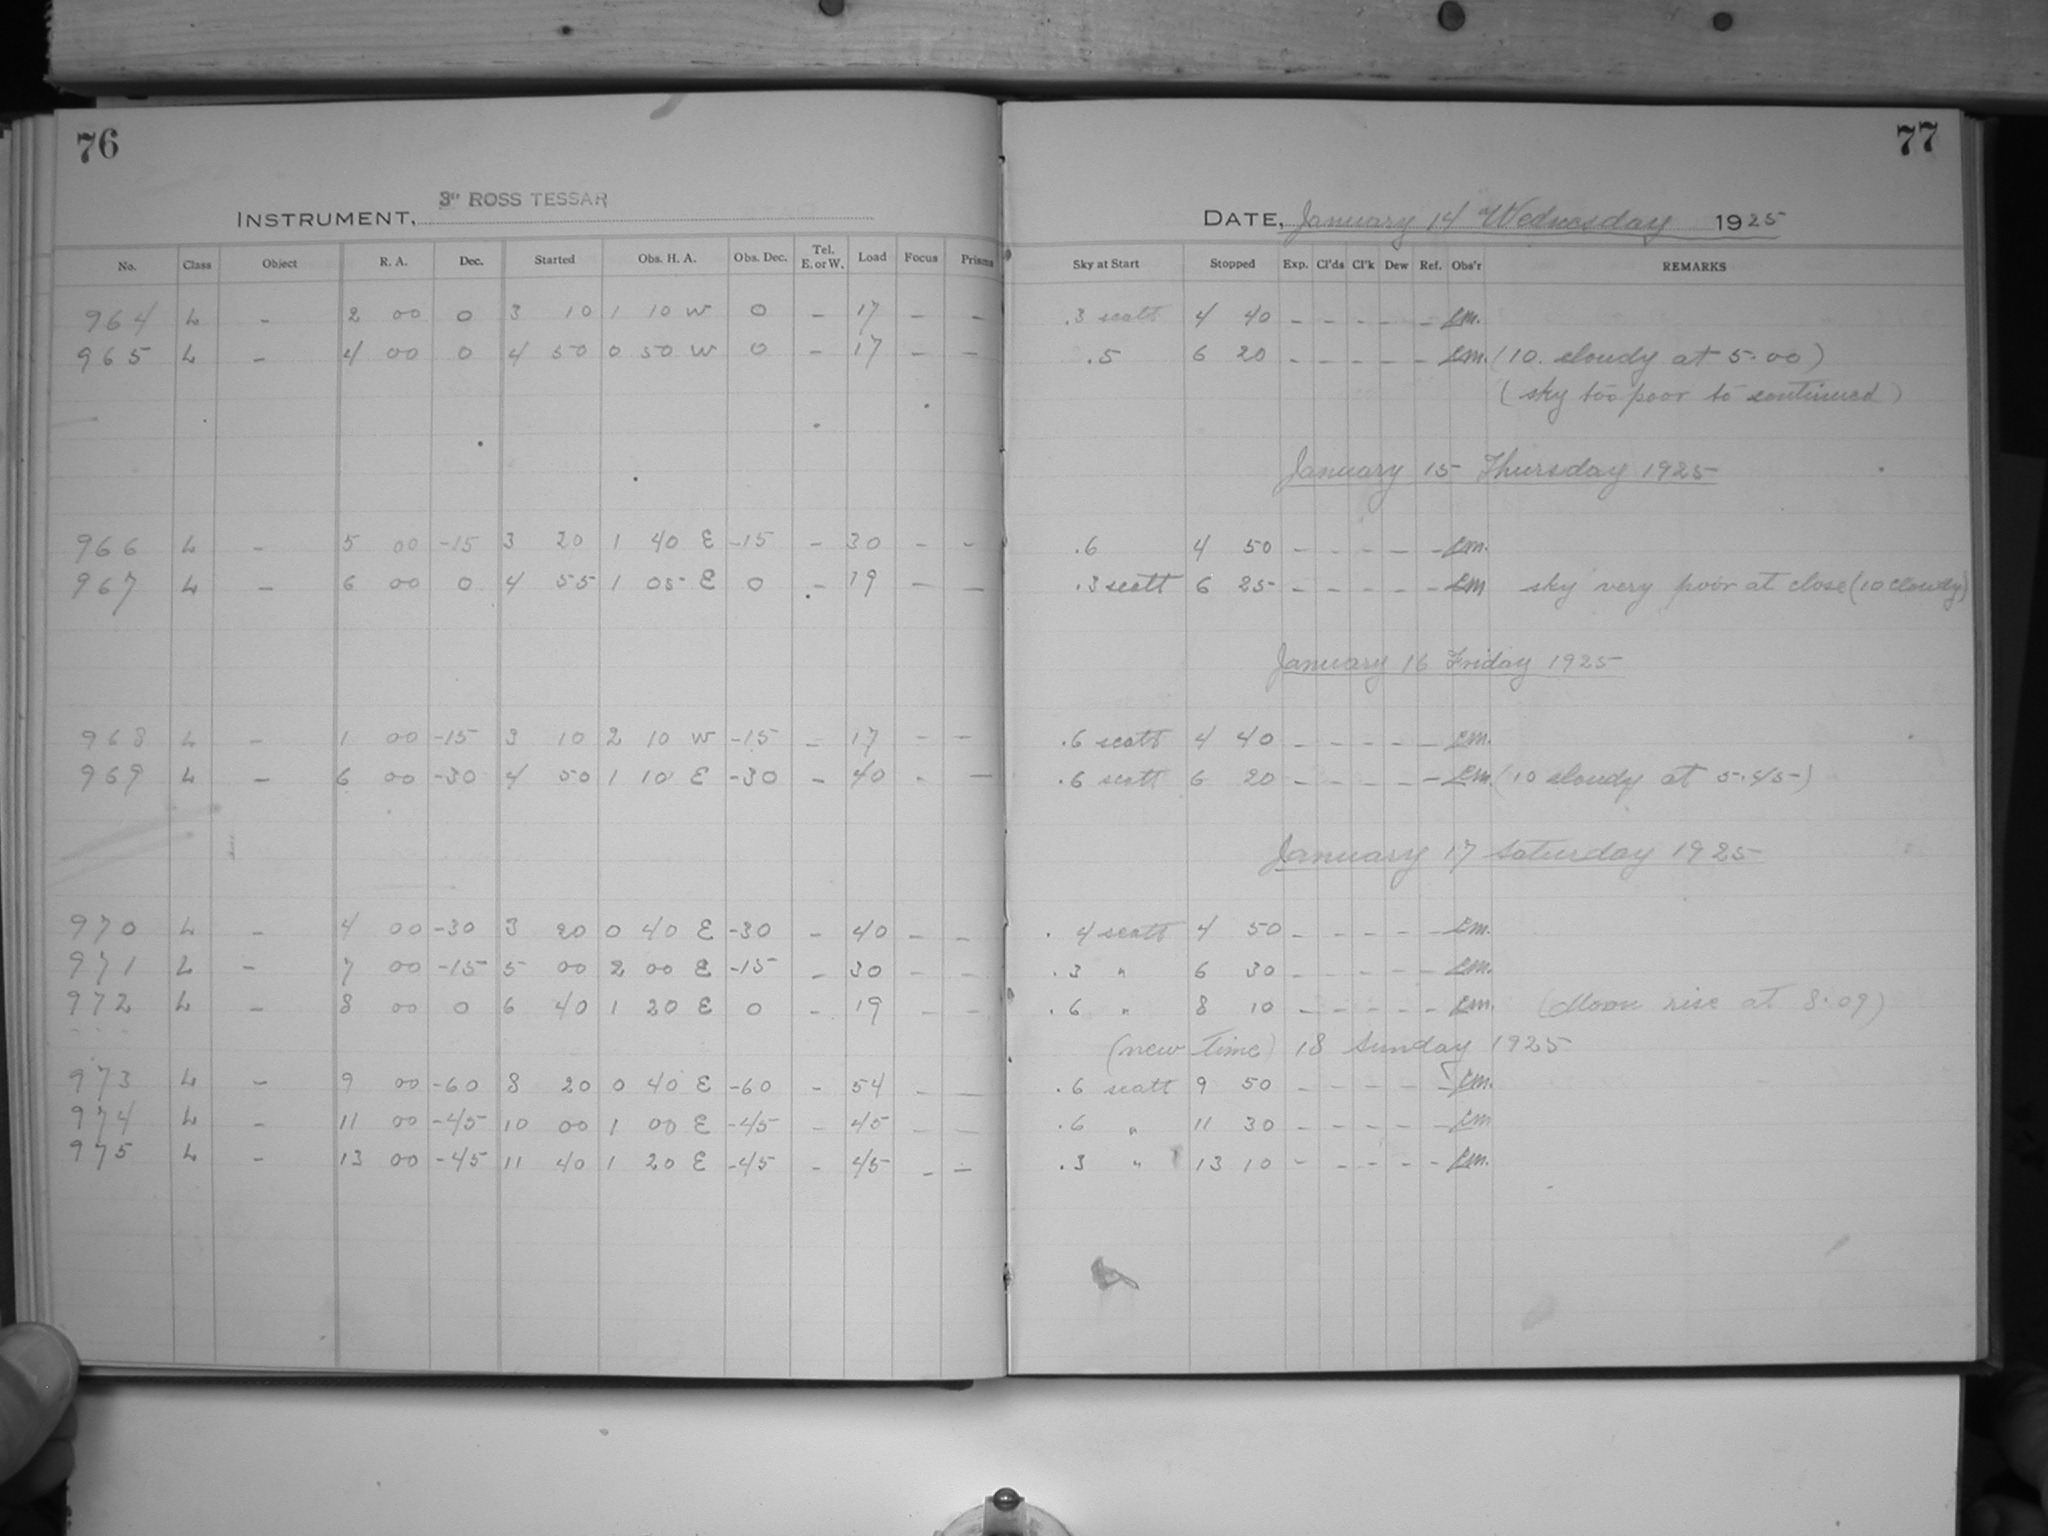 76
INSTRUMENT, 3" ROSS TESSAR
No. Class Object R. A. Dec. Started Obs. H. A. Obs. Dec. Tel. E. or W. Load Focus Prisms
964 L - 2 00 0 3 10 1 10 W 0 - 17 - -
965 L - 4 00 0 4 50 0 50 W 0 - 17 - -
966 L - 5 00 -15 3 20 1 40 E -15 - 30 - -
967 L - 6 00 0 4 55 1 05 E 0 - 19 - -
968 L - 1 00 -15 3 10 2 10 W -15 - 17 - -
969 L - 6 00 -30 4 50 1 10 E -30 - 40 - -
970 L - 4 00 -30 3 20 0 40 E -30 - 40 - -
971 L - 7 00 -15 5 00 2 00 E -15 - 30 - -
972 L - 8 00 0 6 40 1 20 E 0 - 19 - -
973 L - 9 00 -60 8 20 0 40 E -60 - 54 - -
974 L - 11 00 -45 10 00 1 00 E -45 - 45 - -
975 L - 13 00 -45 11 40 1 20 E -45 - 45 - -
77
DATE, January 14 Wednesday 1925
Sky at Start Stopped Exp. Cl'ds Cl'k Dew Ref. Obs'r REMARKS
.3 scatt 4 40 - - - - - Lm.
.5 6 20 - - - - - Lm. (10. cloudy at 5.00)
(sky too poor to continued)
January 15 Thursday 1925
.6 4 50 - - - - - Lm.
.3 scatt 6 25 - - - - - Lm sky very poor at close (10 cloudy)
January 16 Friday 1925
.6 scatt 4 40 - - - - - Lm.
.6 scatt 6 20 - - - - - Lm. (10 cloudy at 5.45)
January 17 Saturday 1925
.4 scatt 4 50 - - - - - Lm.
.3 " 6 30 - - - - - Lm.
.6 " 8 10 - - - - - Lm. (Moon rise at 8.09)
(new time) 18 Sunday 1925
.6 scatt 9 50 - - - - - Lm.
.6 " 11 30 - - - - - Lm
.3 " 13 10 - - - - - Lm.